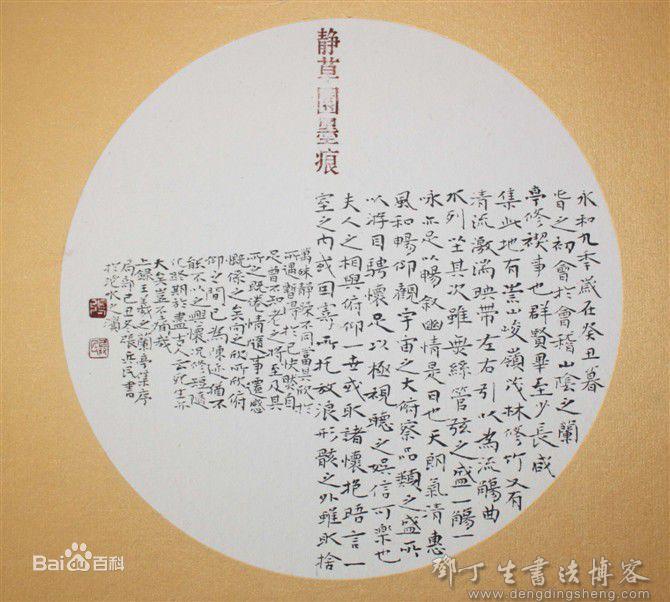 静草園墨痕
永和九季歲在癸丑暮
春之初會於會稽山陰之蘭
亭修禊事也群賢畢至少長咸
集此地有崇山峻嶺茂林修竹又有
清流激湍映帶左右引以為流觴曲
水列坐其次雖無絲管弦之盛一觴一
咏亦足以暢敘幽情是日也天朗氣清惠
風和暢仰觀宇宙之大俯察品類之盛所
以游目騁懷足以極視聽之娛信可樂也
夫人之相與俯仰一世或取諸懷抱晤言一
室之內或因寄所托放浪形骸之外雖取捨
萬殊靜躁不同當其欣於
所遇暫得於己快然自
足曾不知老之將至及其
所之既倦情隨事遷感
慨係之矣向之所欣俯
仰之間已為陳迹猶不
能不以之興懷況修短隨
化終期於盡古人云死生亦
大矣豈不痛哉
上錄王羲之蘭亭集序
局部己丑冬張岳民書
於水之濱
Bai百科
鄧丁生書法博客
www.dengdingsheng.com